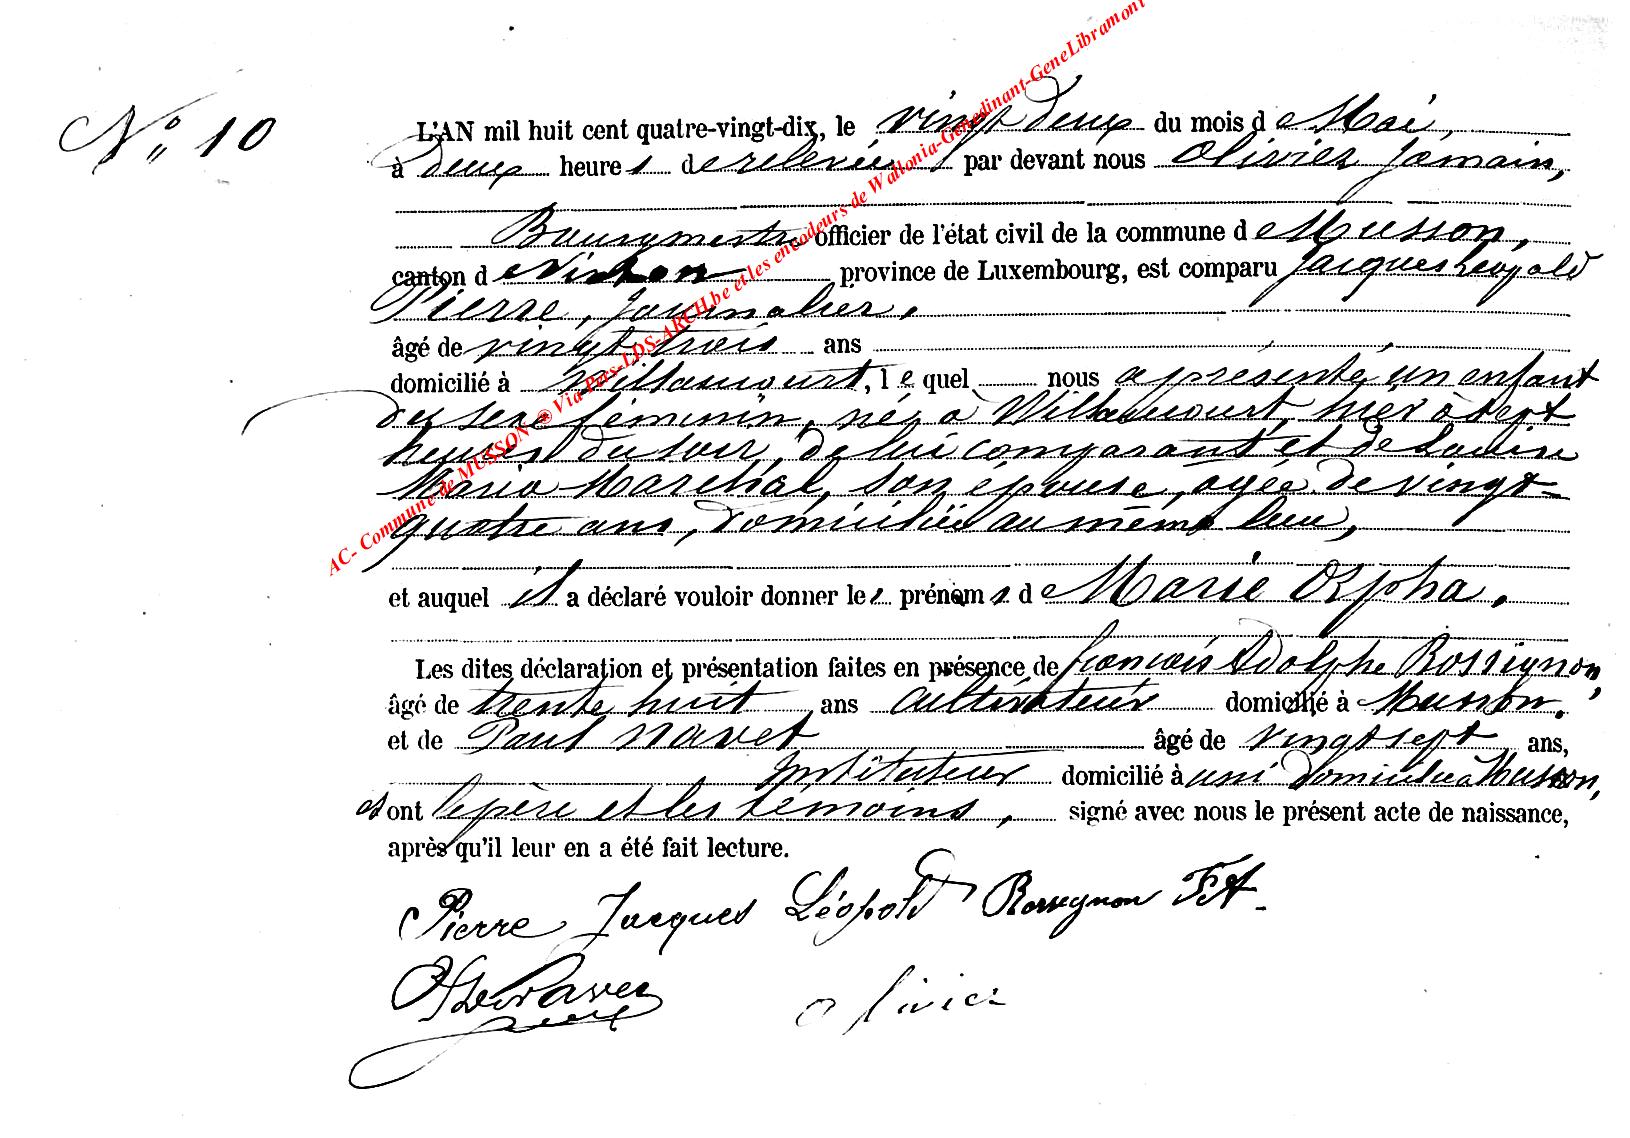 N° 10
L'AN mil huit cent quatre-vingt-dix, le vingt deux du mois de Mai,
à deux heures de relevée, par devant nous Olivier Jamain,
Bourgmestre officier de l'état civil de la commune de Musson,
canton de Virton province de Luxembourg, est comparu Jacques Léopold
Pierre, journalier,
âgé de vingt trois ans
domicilié à Willancourt, lequel nous a présenté un enfant
du sexe féminin, née à Willancourt, hier à sept
heures du soir, de lui comparant et de
Maria Marchal, son épouse, agée de vingt-
quatre ans, domiciliée au même lieu,
et auquel il a déclaré vouloir donner les prénoms de Marie Orpha.
Les dites déclaration et présentation faites en présence de françois Adolphe Rossignon,
âgé de trente huit ans cultivateur domicilié à Musson.
et de Paul Navet âgé de vingt sept ans,
Instituteur domicilié à domicilié à Musson,
et ont le père et les témoins, signé avec nous le présent acte de naissance,
après qu'il leur en a été fait lecture.
Pierre Jacques Léopold Rossignon F A
Olivier
AC- Commune de MUSSON ® Via Pers-LDS-ARCH.be et les encodeurs de Wallonia-Genedinant-GeneLibramont